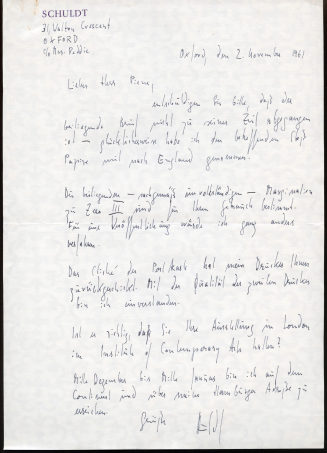 SCHULDT
31, Walton Crescent
OXFORD
c/o Mrs. Peddie
Oxford, den 2. November 1961
Lieber Herr Piene,
entschuldigen Sie bitte, daß der
beiliegende Brief nicht zu seiner Zeit abgegangen
ist – glücklicherweise habe ich den betreffenden Stoß
Papiere mit nach England genommen.
Die beiliegenden – unvollständigen – Marginalien
zu Zero III sind für Ihren Gebrauch bestimmt.
Für eine Veröffentlichung würde ich ganz anders
verfahren.
Das Cliché der hat mein Drucker Ihnen
zurückgeschickt. Mit der Qualität der zweiten Drucke
bin ich einverstanden.
Ist es richtig, daß Sie Ihre Ausstellung in London
im Institute of Contemporary Arts halten?
Mitte Dezember bis Mitte Januar bin ich auf dem
Continent und über meine Hamburger Adresse zu
erreichen.
Grüße